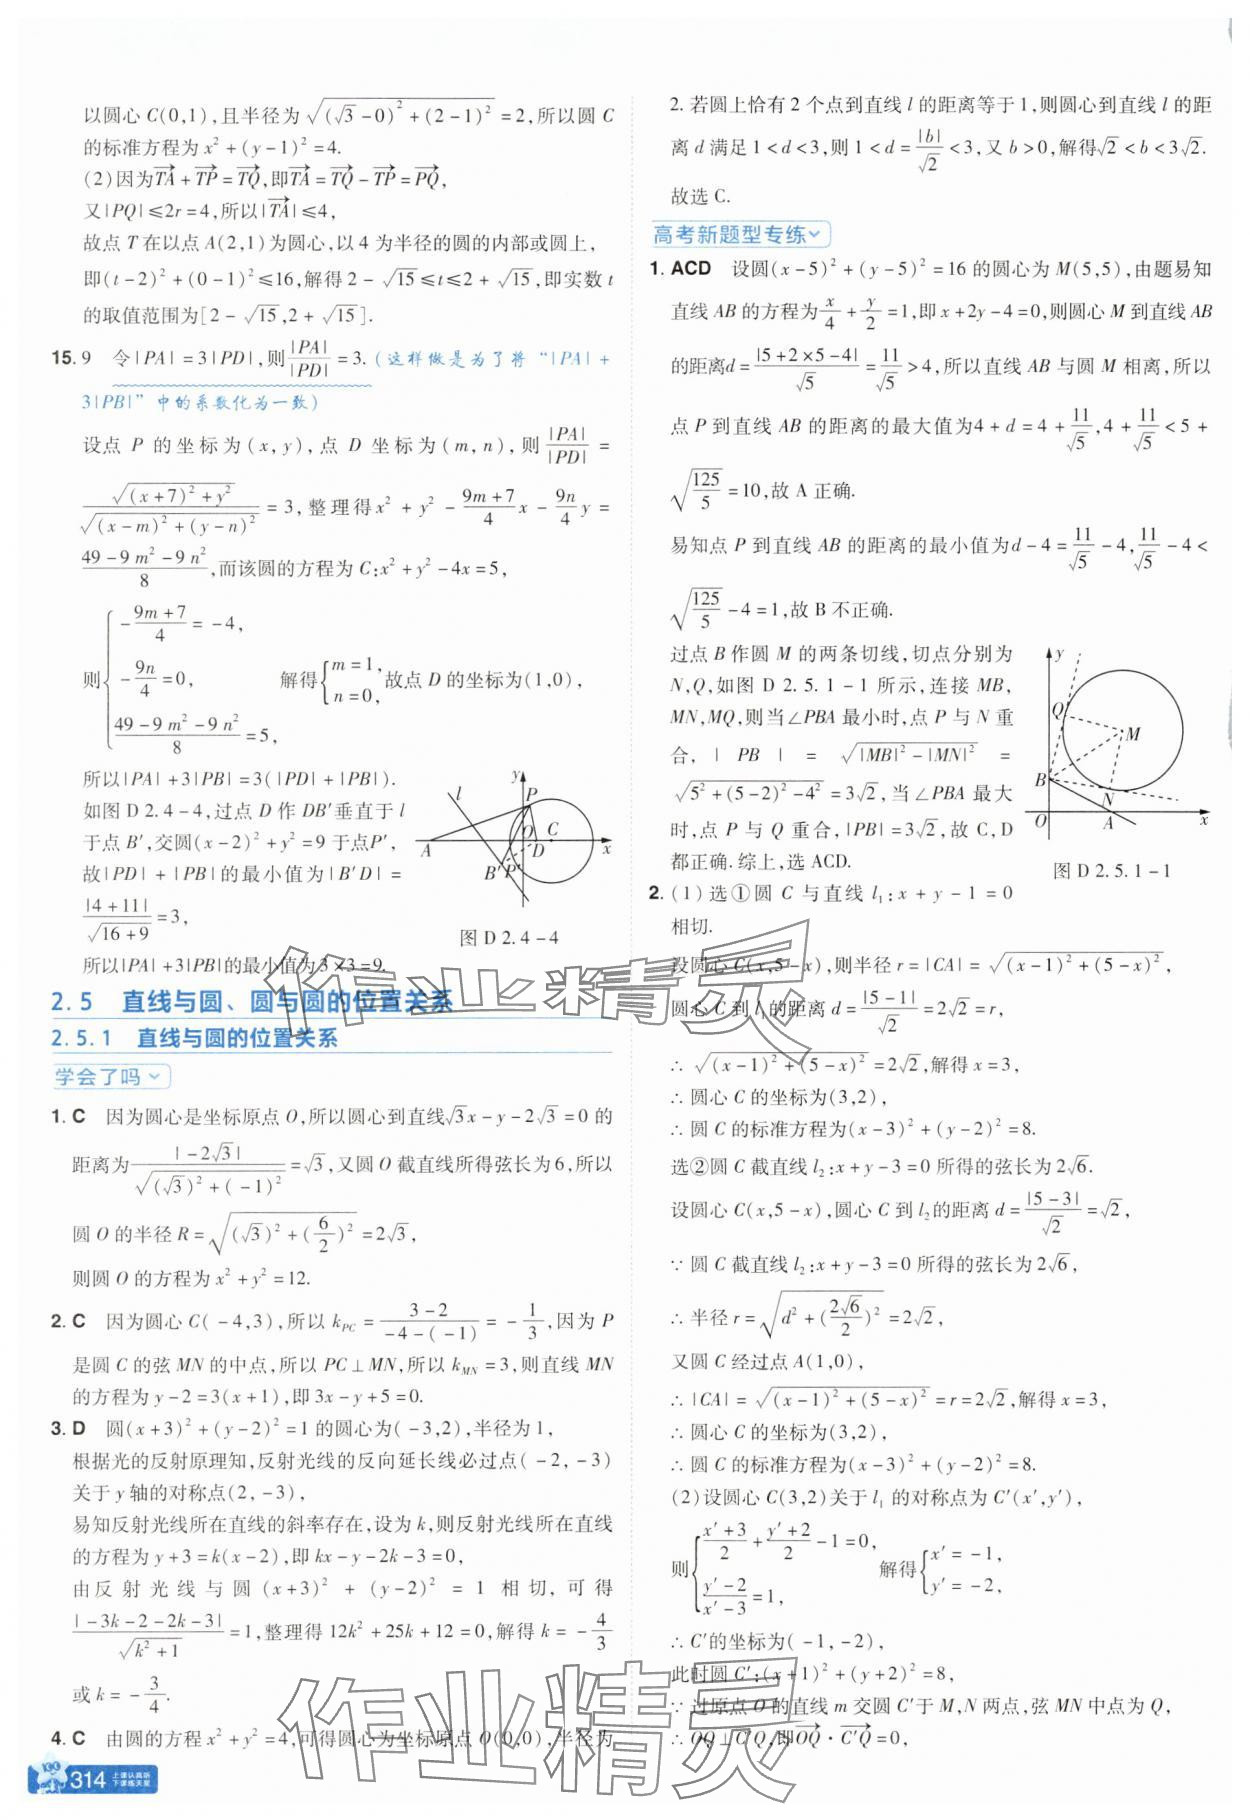 以圆心 C(0,1),且半径为√((√3-0)²+(2-1)²)=2,所以圆 C
的标准方程为 x²+(y-1)²=4.
(2)因为TA→+TP→=TQ→,即TA→=TQ→-TP→=PQ→,
又|PQ|≤2r=4,所以|TA→|≤4,
故点 T 在以点 A(2,1)为圆心,以 4 为半径的圆的内部或圆上,
即(t-2)²+(0-1)²≤16,解得 2-√15≤t≤2+√15,即实数 t
的取值范围为[2-√15,2+√15].
15. 9 令|PA|=3|PD|,则|PA|/|PD|=3.(这样做是为了将“|PA|+
3|PB|”中的系数化为一致)
设点 P 的坐标为(x,y),点 D 坐标为(m,n),则|PA|/|PD|=
√((x+7)²+y²)/√((x-m)²+(y-n)²)=3,整理得x²+y²-(9m+7)/4 x-9n/4 y=
(49-9m²-9n²)/8,而该圆的方程为 C:x²+y²-4x=5,
则{-(9m+7)/4=-4, -9n/4=0, (49-9m²-9n²)/8=5, 解得{m=1, n=0, 故点 D 的坐标为(1,0),
所以|PA|+3|PB|=3(|PD|+|PB|).
如图 D 2.4-4,过点 D 作 DB′垂直于 l
于点 B′,交圆(x-2)²+y²=9 于点P′,
故|PD|+|PB|的最小值为|B′D|=
|4+11|/√(16+9)=3,
l y P O C A D x B′ P′
图 D 2.4-4
所以|PA|+3|PB|的最小值为3×3=9.
2.5 直线与圆、圆与圆的位置关系
2.5.1 直线与圆的位置关系
学会了吗
1. C 因为圆心是坐标原点 O,所以圆心到直线√3x-y-2√3=0 的
距离为|-2√3|/√((√3)²+(-1)²)=√3,又圆 O 截直线所得弦长为 6,所以
圆 O 的半径 R=√((√3)²+(6/2)²)=2√3,
则圆 O 的方程为 x²+y²=12.
2. C 因为圆心 C(-4,3),所以 k_PC=(3-2)/(-4-(-1))=-1/3,因为 P
是圆 C 的弦 MN 的中点,所以 PC⊥MN,所以 k_MN=3,则直线 MN
的方程为 y-2=3(x+1),即 3x-y+5=0.
3. D 圆(x+3)²+(y-2)²=1 的圆心为(-3,2),半径为 1,
根据光的反射原理知,反射光线的反向延长线必过点(-2,-3)
关于 y 轴的对称点(2,-3),
易知反射光线所在直线的斜率存在,设为 k,则反射光线所在直线
的方程为 y+3=k(x-2),即 kx-y-2k-3=0,
由反射光线与圆(x+3)²+(y-2)²=1 相切,可得
|-3k-2-2k-3|/√(k²+1)=1,整理得 12k²+25k+12=0,解得 k=-4/3
或 k=-3/4.
4. C 由圆的方程 x²+y²=4,可得圆心为坐标原点 O(0,0),半径为
314 上课认真听 下课练天星
2. 若圆上恰有 2 个点到直线 l 的距离等于 1,则圆心到直线 l 的距
离 d 满足 1<d<3,则 1<d=|b|/√2<3,又 b>0,解得√2<b<3√2.
故选 C.
高考新题型专练
1. ACD 设圆(x-5)²+(y-5)²=16 的圆心为 M(5,5),由题易知
直线 AB 的方程为x/4+y/2=1,即 x+2y-4=0,则圆心 M 到直线 AB
的距离d=|5+2×5-4|/√5=11/√5>4,所以直线 AB 与圆 M 相离,所以
点 P 到直线 AB 的距离的最大值为4+d=4+11/√5,4+11/√5<5+
√(125/5)=10,故 A 正确.
易知点 P 到直线 AB 的距离的最小值为d-4=11/√5-4,11/√5-4<
√(125/5)-4=1,故 B 不正确.
过点 B 作圆 M 的两条切线,切点分别为
N,Q,如图 D 2.5.1-1 所示,连接 MB,
MN,MQ,则当∠PBA 最小时,点 P 与 N 重
合,|PB|=√(|MB|²-|MN|²)=
√(5²+(5-2)²-4²)=3√2,当∠PBA 最大
时,点 P 与 Q 重合,|PB|=3√2,故 C,D
都正确.综上,选 ACD.
y Q M B N O A x
图 D 2.5.1-1
2. (1)选①圆 C 与直线 l₁:x+y-1=0
相切.
设圆心 C(x,5-x),则半径 r=|CA|=√((x-1)²+(5-x)²),
圆心 C 到 l₁的距离 d=|5-1|/√2=2√2=r,
∴√((x-1)²+(5-x)²)=2√2,解得 x=3,
∴圆心 C 的坐标为(3,2),
∴圆 C 的标准方程为(x-3)²+(y-2)²=8.
选②圆 C 截直线 l₂:x+y-3=0 所得的弦长为 2√6.
设圆心 C(x,5-x),圆心 C 到 l₂的距离 d=|5-3|/√2=√2,
∵圆 C 截直线 l₂:x+y-3=0 所得的弦长为 2√6,
∴半径 r=√(d²+(2√6/2)²)=2√2,
又圆 C 经过点 A(1,0),
∴|CA|=√((x-1)²+(5-x)²)=r=2√2,解得 x=3,
∴圆心 C 的坐标为(3,2),
∴圆 C 的标准方程为(x-3)²+(y-2)²=8.
(2)设圆心 C(3,2)关于 l₁ 的对称点为 C′(x′,y′),
则{(x′+3)/2+(y′+2)/2-1=0, (y′-2)/(x′-3)=1, 解得{x′=-1, y′=-2,
∴C′的坐标为(-1,-2),
此时圆 C′:(x+1)²+(y+2)²=8,
∵过原点 O 的直线 m 交圆 C′于 M,N 两点,弦 MN 中点为 Q,
∴OQ⊥C′Q,即OQ→·C′Q→=0,
作业精灵
作业精灵